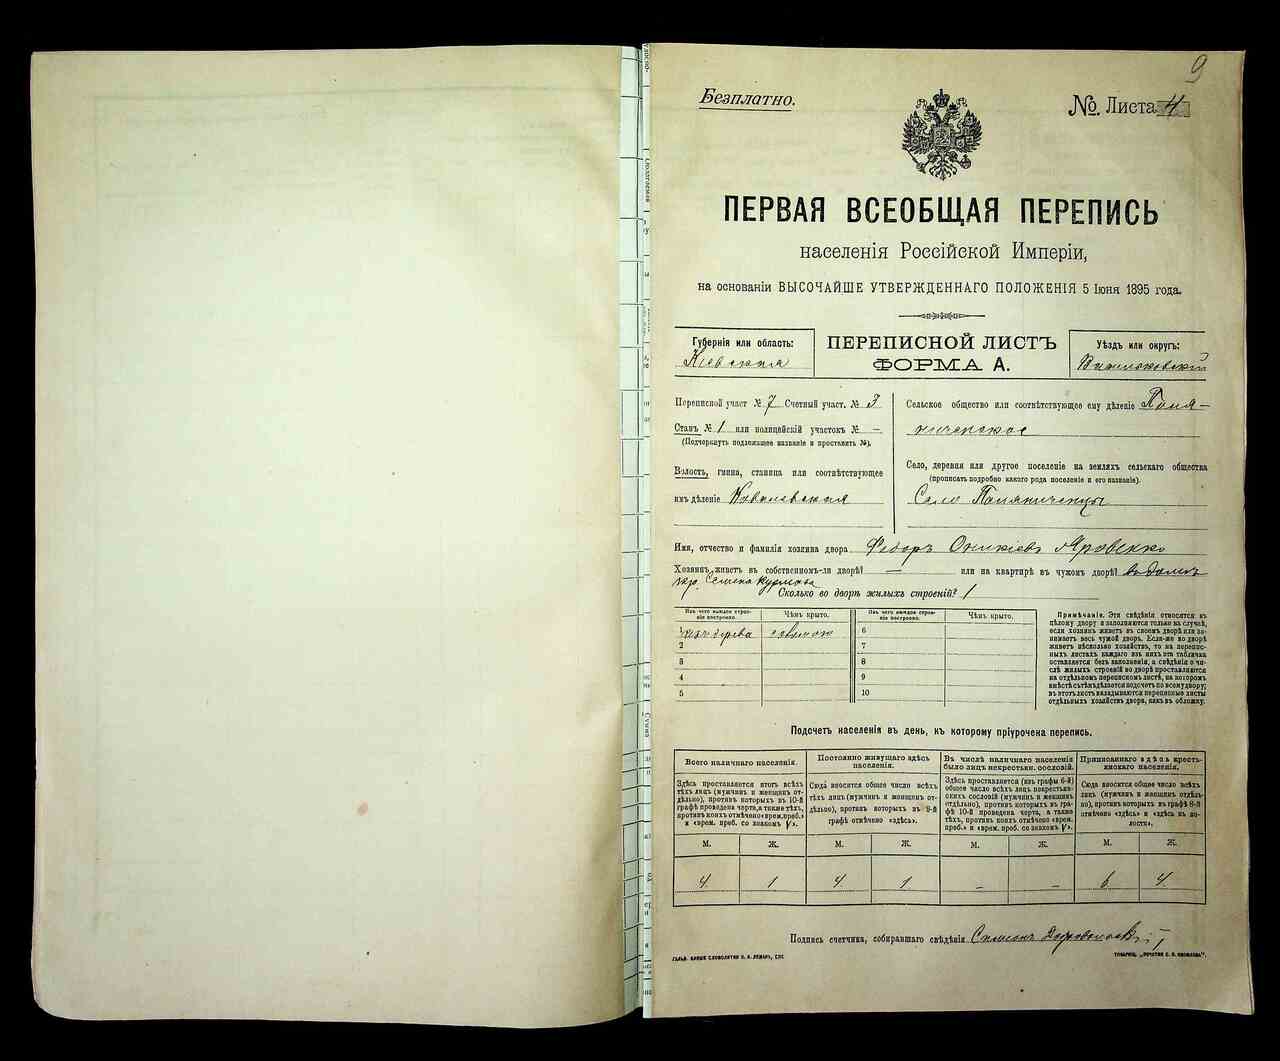 9
Безплатно.
№. Листа 4
ПЕРВАЯ ВСЕОБЩАЯ ПЕРЕПИСЬ
населенія Россійской Имперіи,
на основаніи ВЫСОЧАЙШЕ УТВЕРЖДЕННАГО ПОЛОЖЕНІЯ 5 Іюня 1895 года.
Губернія или область:
Кіевская
ПЕРЕПИСНОЙ ЛИСТЪ
ФОРМА А.
Уѣздъ или округъ:
Васильковскій
Переписной участ. № 7 Счетный участ. № 3
Станъ № 1 или полицейскій участокъ № –
(Подчеркнуть подлежащее названіе и проставить №).
Волость, гмина, станица или соотвѣтствующее
имъ дѣленіе Ковалевская
Сельское общество или соотвѣтствующее ему дѣленіе Поля-
ниченское
Село, деревня или другое поселеніе на земляхъ сельскаго общества
(прописать подробно какого рода поселеніе и его названіе).
Село Поляниченцы
Имя, отчество и фамилія хозяина двора Федоръ Оникіевъ Яровенко
Хозяинъ живетъ въ собственномъ-ли дворѣ? — или на квартирѣ въ чужомъ дворѣ? въ домѣ
кр. Семена
Сколько во дворѣ жилыхъ строеній? 1
Изъ чего каждое строе-
ніе построено.
Чѣмъ крыто.
Изъ чего каждое строе-
ніе построено.
Чѣмъ крыто.
1 изъ дерева соломою
2
3
4
5
6
7
8
9
10
Примѣчаніе. Эти свѣдѣнія относятся къ
цѣлому двору и заполняются только въ случаѣ,
если хозяинъ живетъ въ своемъ дворѣ или за-
нимаетъ весь чужой дворъ. Если-же во дворѣ
живетъ нѣсколько хозяйствъ, то на перепис-
ныхъ листахъ каждаго изъ нихъ эта табличка
оставляется безъ заполненія, а свѣдѣнія о чи-
слѣ жилыхъ строеній во дворѣ проставляются
на отдѣльномъ переписномъ листѣ, на которомъ
вмѣстѣ съ тѣмъ дѣлается подсчетъ по всему двору;
въ этотъ листъ вкладываются переписные листы
отдѣльныхъ хозяйствъ двора, какъ въ обложку.
Подсчетъ населенія въ день, къ которому пріурочена перепись.
Всего наличнаго населенія.
Здѣсь проставляется итогъ всѣхъ
тѣхъ лицъ (мужчинъ и женщинъ от-
дѣльно), противъ которыхъ въ 10-й
графѣ проведена черта, а также тѣхъ,
противъ коихъ отмѣчено «врем. преб.»
и «врем. преб. со знакомъ V».
Постоянно живущаго здѣсь
населенія.
Сюда вносится общее число всѣхъ
тѣхъ лицъ (мужчинъ и женщинъ от-
дѣльно), противъ которыхъ въ 9-й
графѣ отмѣчено «здѣсь».
Въ числѣ наличнаго населенія
было лицъ некрестьян. сословій.
Здѣсь проставляется (изъ графы 6-й)
общее число всѣхъ лицъ некрестьян-
скихъ сословій (мужчинъ и женщинъ
отдѣльно), противъ которыхъ въ гра-
фѣ 10-й проведена черта, а также
тѣхъ, противъ коихъ отмѣчено «врем.
преб.» и «врем. преб. со знакомъ V».
Приписаннаго здѣсь кресть-
янскаго населенія.
Сюда вносится общее число всѣхъ
лицъ (мужчинъ и женщинъ отдѣль-
но), противъ которыхъ въ графѣ 8-й
отмѣчено «здѣсь» и «здѣсь въ во-
лости».
М. Ж. М. Ж. М. Ж. М. Ж.
4 1 4 1 – – 6 4
Подпись счетчика, собиравшаго свѣдѣнія